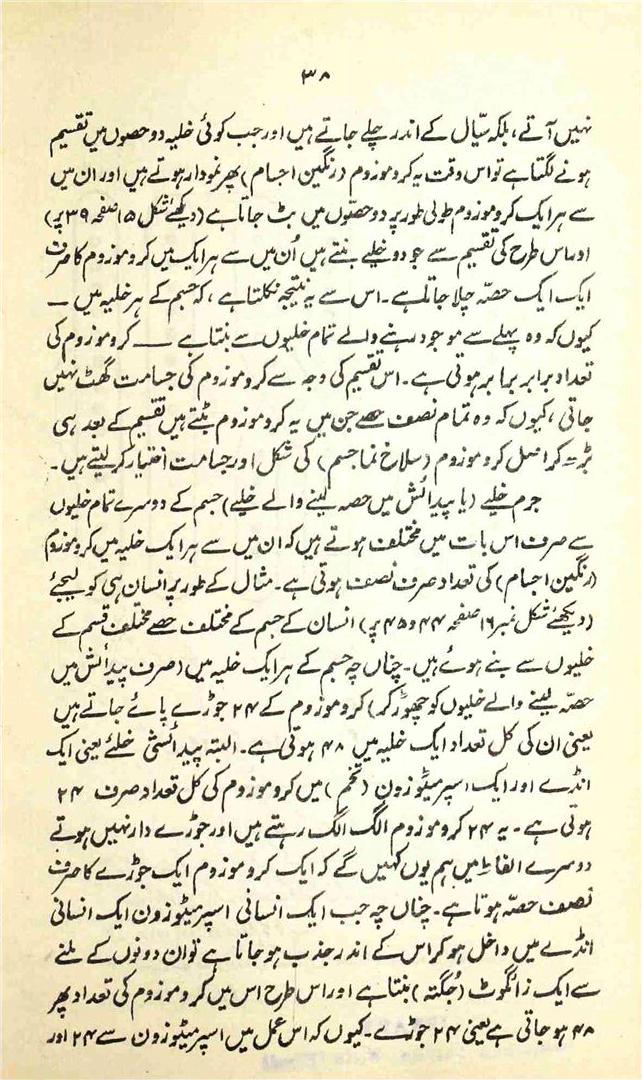 ۳۸
نہیں آتے، بلکہ سیّال کے اندر چلے جاتے ہیں اور جب کوئی خلیہ دو حصوں میں تقسیم
ہونے لگتا ہے تو اس وقت یہ کروموزوم (رنگین اجسام) پھر نمودار ہوتے ہیں اور ان میں
سے ہر ایک کروموزوم طولی طور پر دو حصّوں میں بٹ جاتا ہے (دیکھئے شکل ۱۵ صفحہ ۳۹ پر)
اور اس طرح کی تقسیم سے جو دو خلیے بنتے ہیں اُن میں سے ہر ایک میں کروموزوم کا صرف
ایک ایک حصّہ چلا جاتا ہے۔ اس سے یہ نتیجہ نکلتا ہے، کہ جسم کے ہر خلیہ میں —
کیوں کہ وہ پہلے سے موجود رہنے والے تمام خلیوں سے بنتا ہے — کروموزوم کی
تعداد برابر برابر ہوتی ہے۔ اس تقسیم کی وجہ سے کروموزوم کی جسامت گھٹ نہیں
جاتی، کیوں کہ وہ تمام نصف حصے جن میں یہ کروموزوم بٹتے ہیں تقسیم کے بعد ہی
بڑھ کر اصل کروموزوم (سلاخ نما جسم) کی شکل اور جسامت اختیار کر لیتے ہیں۔
جرم خلیے (یا پیدائش میں حصہ لینے والے خلیے) جسم کے دوسرے تمام خلیوں
سے صرف اس بات میں مختلف ہوتے ہیں کہ ان میں سے ہر ایک خلیہ میں کروموزوم
(رنگین اجسام) کی تعداد صرف نصف ہوتی ہے۔ مثال کے طور پر انسان ہی کو لیجئے
(دیکھئے شکل نمبر ۱۶ صفحہ ۴۴ و ۴۵ پر) انسان کے جسم کے مختلف حصے مختلف قسم کے
خلیوں سے بنے ہوئے ہیں۔ چناں چہ جسم کے ہر ایک خلیہ میں (صرف پیدائش میں
حصّہ لینے والے خلیوں کو چھوڑ کر) کروموزوم کے ۲۴ جوڑے پائے جاتے ہیں
یعنی ان کی کل تعداد ایک خلیہ میں ۴۸ ہوتی ہے۔ البتہ پیدائشی خلئے یعنی ایک
انڈے اور ایک اسپرمیٹوزون (تخم) میں کروموزوم کی کل تعداد صرف ۲۴
ہوتی ہے۔ یہ ۲۴ کروموزوم الگ الگ رہتے ہیں اور جوڑے دار نہیں ہوتے
دوسرے الفاظ میں ہم یوں کہیں گے کہ ایک کروموزوم ایک جوڑے کا صرف
نصف حصّہ ہوتا ہے۔ چناں چہ جب ایک انسانی اسپرمیٹوزون ایک انسانی
انڈے میں داخل ہو کر اس کے اندر جذب ہو جاتا ہے تو ان دونوں کے ملنے
سے ایک زائگوٹ (جُگتہ) بنتا ہے اور اس طرح اس میں کروموزوم کی تعداد پھر
۴۸ ہو جاتی ہے یعنی ۲۴ جوڑے۔ کیوں کہ اس عمل میں اسپرمیٹوزون سے ۲۴ اور